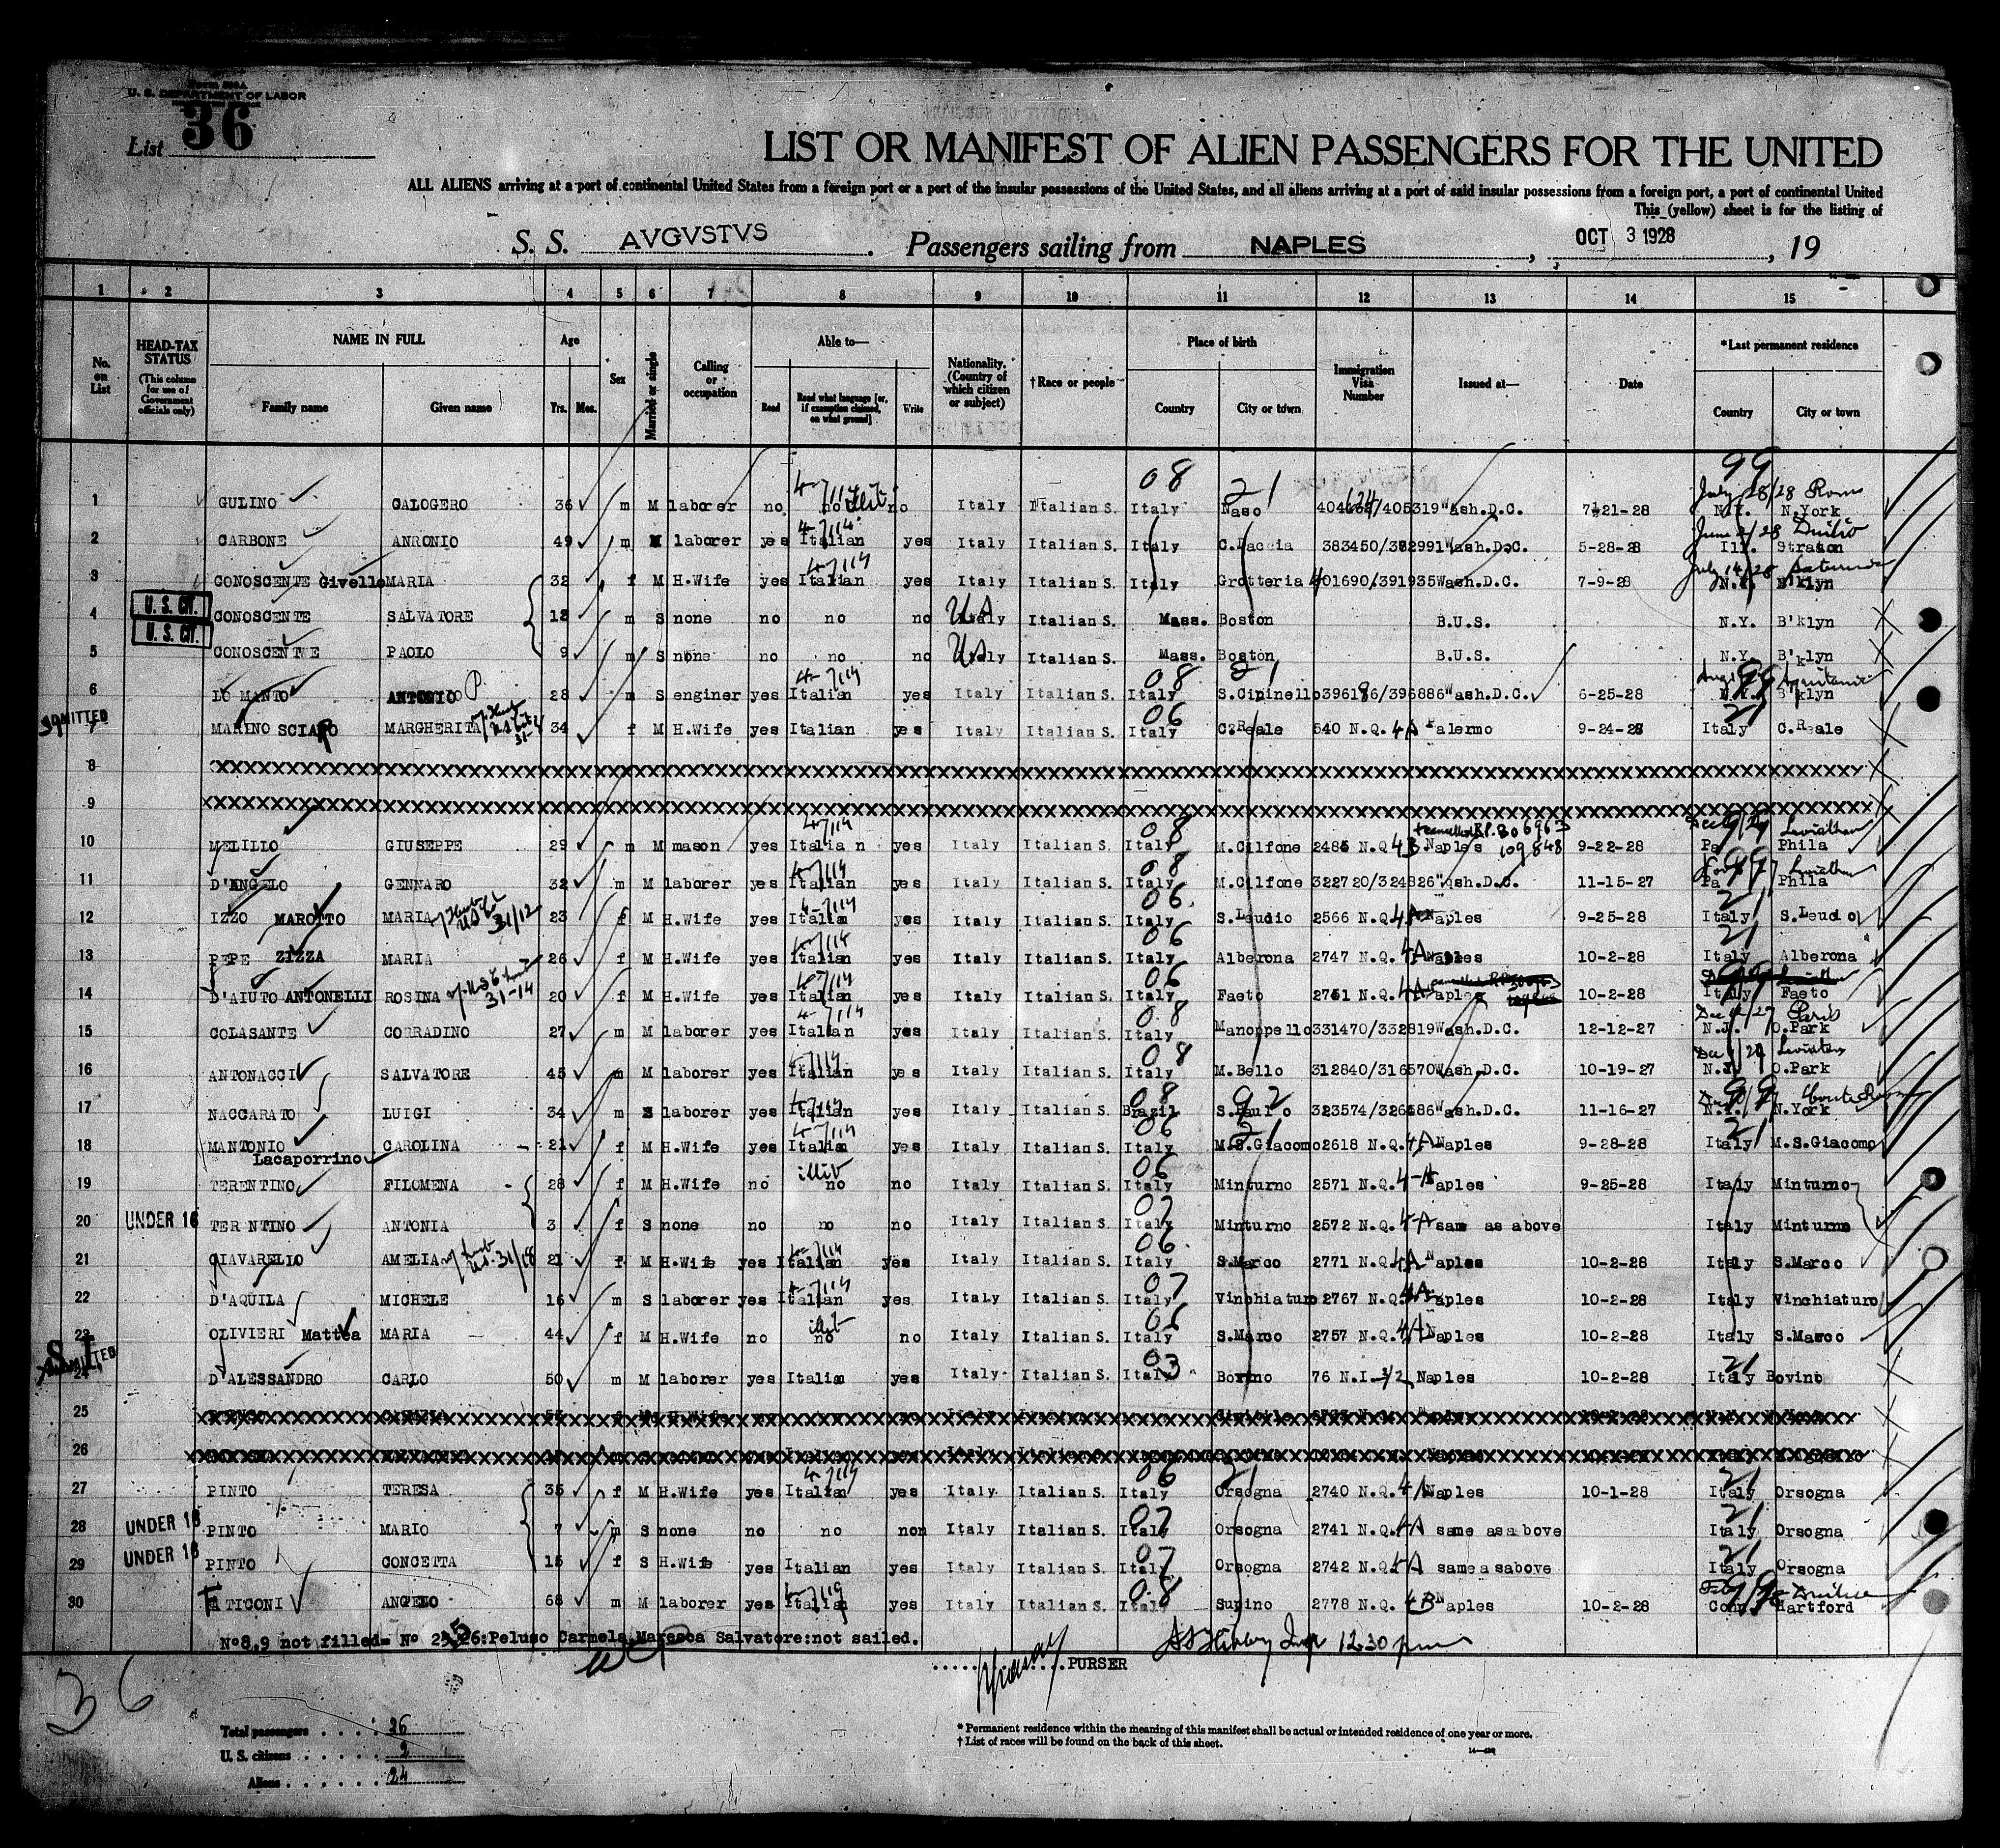 U. S. DEPARTMENT OF LABOR
List 36
LIST OR MANIFEST OF ALIEN PASSENGERS FOR THE UNITED
ALL ALIENS arriving at a port of continental United States from a foreign port or a port of the insular possessions of the United States, and all aliens arriving at a port of said insular possessions from a foreign port, a port of continental United
This (yellow) sheet is for the listing of
S. S. AVGVSTVS. Passengers sailing from NAPLES, OCT 3 1928, 19
1 2 3 4 5 6 7 8 9 10 11 12 13 14 15
No. on List
HEAD-TAX STATUS (This column for use of Government officials only)
NAME IN FULL
Family name Given name
Age
Yrs. Mos.
Sex
Married or single
Calling or occupation
Able to—
Read Read what language [or, if exemption claimed, on what ground] Write
Nationality. (Country of which citizen or subject)
†Race or people
Place of birth
Country City or town
Immigration Visa Number
Issued at—
Date
*Last permanent residence
Country City or town
99
4-7/14 08 21 July 28/28 Roma
1 GULINO CALOGERO 36 m M laborer no no no Italy Italian S. Italy Naso /405319 Wash.D.C. 7-21-28 N.Y. N.York
4-7/14 June 2/28 Duilio
2 CARBONE ANRONIO 49 m M laborer yes Italian yes Italy Italian S. Italy 383450/382991 Wash.D.C. 5-28-28 Ill.
4-7/14 July 14/28 Saturnia
3 CONOSCENTE Givello MARIA 32 f M H.Wife yes Italian yes Italy Italian S. Italy Grotteria 401690/391935 Wash.D.C. 7-9-28 N.Y. B'klyn
U. S. CIT.
4 CONOSCENTE SALVATORE 12 m S none no no no Italy USA Italian S. Mass. Boston B.U.S. N.Y. B'klyn
U. S. CIT.
5 CONOSCENTE PAOLO 9 m S none no no no Italy US Italian S. Mass. Boston B.U.S. N.Y. B'klyn
4-7/14 08 21 99
6 LO MANTO ANTONIO P 28 m S enginer yes Italian yes Italy Italian S. Italy S.Cipinello 396186/396886 Wash.D.C. 6-25-28 N.Y. B'klyn
ADMITTED 06 21
7 MARINO SCIARO MARGHERITA 34 f M H.Wife yes Italian yes Italy Italian S. Italy C.Reale 540 N.Q. 4A Palermo 9-24-28 Italy C.Reale
8 XXXXXXXXXX
9 XXXXXXXXXX
4-7/14 08 cancelled R.P. 806963 109848 Leviathan
10 MELILLO GIUSEPPE 29 m M mason yes Italian yes Italy Italian S. Italy M.Cilfone 2485 N.Q. 4B Naples 9-22-28 Pa Phila
4-7/14 08 99 Leviathan
11 D'ANGELO GENNARO 32 m M laborer yes Italian yes Italy Italian S. Italy M.Cilfone 322720/324826 Wash.D.C. 11-15-27 Pa Phila
4-7/14 06 21
12 IZZO MAROTTO MARIA 31/12 23 f M H.Wife yes Italian yes Italy Italian S. Italy S.Leudio 2566 N.Q. 4A Naples 9-25-28 Italy S.Leudio
4-7/14 06 21
13 PEPE ZIZZA MARIA 26 f M H.Wife yes Italian yes Italy Italian S. Italy Alberona 2747 N.Q. 4A Naples 10-2-28 Italy Alberona
4-7/14 06
14 D'AIUTO ANTONELLI ROSINA 31-14 20 f M H.Wife yes Italian yes Italy Italian S. Italy Faeto 2751 N.Q. 4A Naples 10-2-28 Italy Faeto
4-7/14 08 Paris
15 COLASANTE CORRADINO 27 m M laborer yes Italian yes Italy Italian S. Italy Manoppello 331470/332819 Wash.D.C. 12-12-27 N.J. O.Park
4-7/14 08
16 ANTONACCI SALVATORE 45 m M laborer yes Italian yes Italy Italian S. Italy M.Bello 312840/316570 Wash.D.C. 10-19-27 N.J. O.Park
4-7/14 08 92 99
17 NACCARATO LUIGI 34 m S laborer yes Italian yes Italy Italian S. Brazil S.Paulo Wash.D.C. 11-16-27 N.Y. N.York
4-7/14 06 21 21
18 MANTONIO Lacaporrino CAROLINA 21 f M H.Wife yes Italian yes Italy Italian S. Italy M.S.Giacomo 2618 N.Q. 4A Naples 9-28-28 Italy M.S.Giacomo
illit 06
19 TERENTINO FILOMENA 28 f M H.Wife no no no Italy Italian S. Italy Minturno 2571 N.Q. 4-A Naples 9-25-28 Italy Minturno
07
20 UNDER 16 TERINTINO ANTONIA 3 f S none no no no Italy Italian S. Italy Minturno 2572 N.Q. 4-A same as above Italy Minturno
4-7/14 06
21 CIAVARELLO AMELIA 31/18 21 f M H.Wife yes Italian yes Italy Italian S. Italy S.Marco 2771 N.Q. 4A Naples 10-2-28 Italy S.Marco
4-7/14 07
22 D'AQUILA MICHELE 16 m S laborer yes Italian yes Italy Italian S. Italy Vinchiaturo 2767 N.Q. 4A Naples 10-2-28 Italy Vinchiaturo
06
23 OLIVIERI Mattea MARIA 44 f M H.Wife no no no Italy Italian S. Italy S.Marco 2757 N.Q. 4A Naples 10-2-28 Italy S.Marco
S.I. ADMITTED 03 21
24 D'ALESSANDRO CARLO 50 m M laborer yes Italian yes Italy Italian S. Italy Bovino 76 N.I. Naples 10-2-28 Italy Bovino
25 XXXXXXXXXX
26 XXXXXXXXXX
4-7/14 06 21 21
27 PINTO TERESA 35 f M H.Wife yes Italian yes Italy Italian S. Italy Orsogna 2740 N.Q. Naples 10-1-28 Italy Orsogna
07 21
28 UNDER 16 PINTO MARIO 7 m S none no no non Italy Italian S. Italy Orsogna 2741 N.Q. 4A same as above Italy Orsogna
07 21
29 UNDER 16 PINTO CONCETTA 15 f S H.Wife yes Italian yes Italy Italian S. Italy Orsogna 2742 N.Q. 4A same as above Italy Orsogna
08
30 TATICONI ANGELO 68 m M laborer yes Italian yes Italy Italian S. Italy Supino 2778 N.Q. 4B Naples 10-2-28 Conn Hartford
No8,9 not filled= No 25,26:Peluso Carmela,Maresca Salvatore:not sailed.
12.30 pm
PURSER
36
Total passengers 26
U. S. citizens 2
Aliens 24
* Permanent residence within the meaning of this manifest shall be actual or intended residence of one year or more.
† List of races will be found on the back of this sheet.